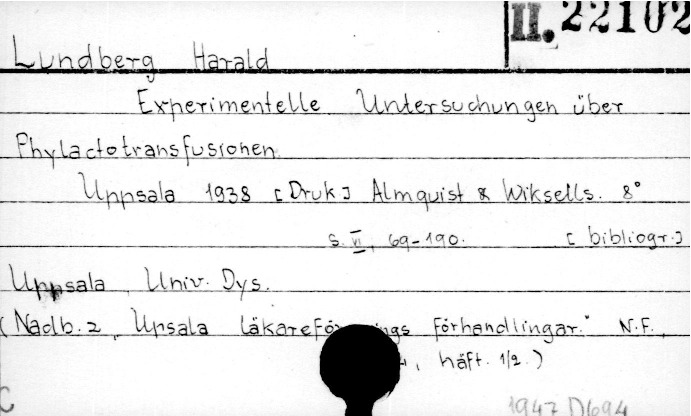 II. 22102
Lundberg Harald
Experimentelle Untersuchungen über
Phylactotransfusionen
Uppsala 1938 [Druk] Almquist & Wiksells. 8°
s. VI, 69-190. [bibliogr.]
Uppsala, Univ. Dys.
(Nadb. z „Upsala förhandlingar." N.F.,
, häft. 1/2.)
1947 D694